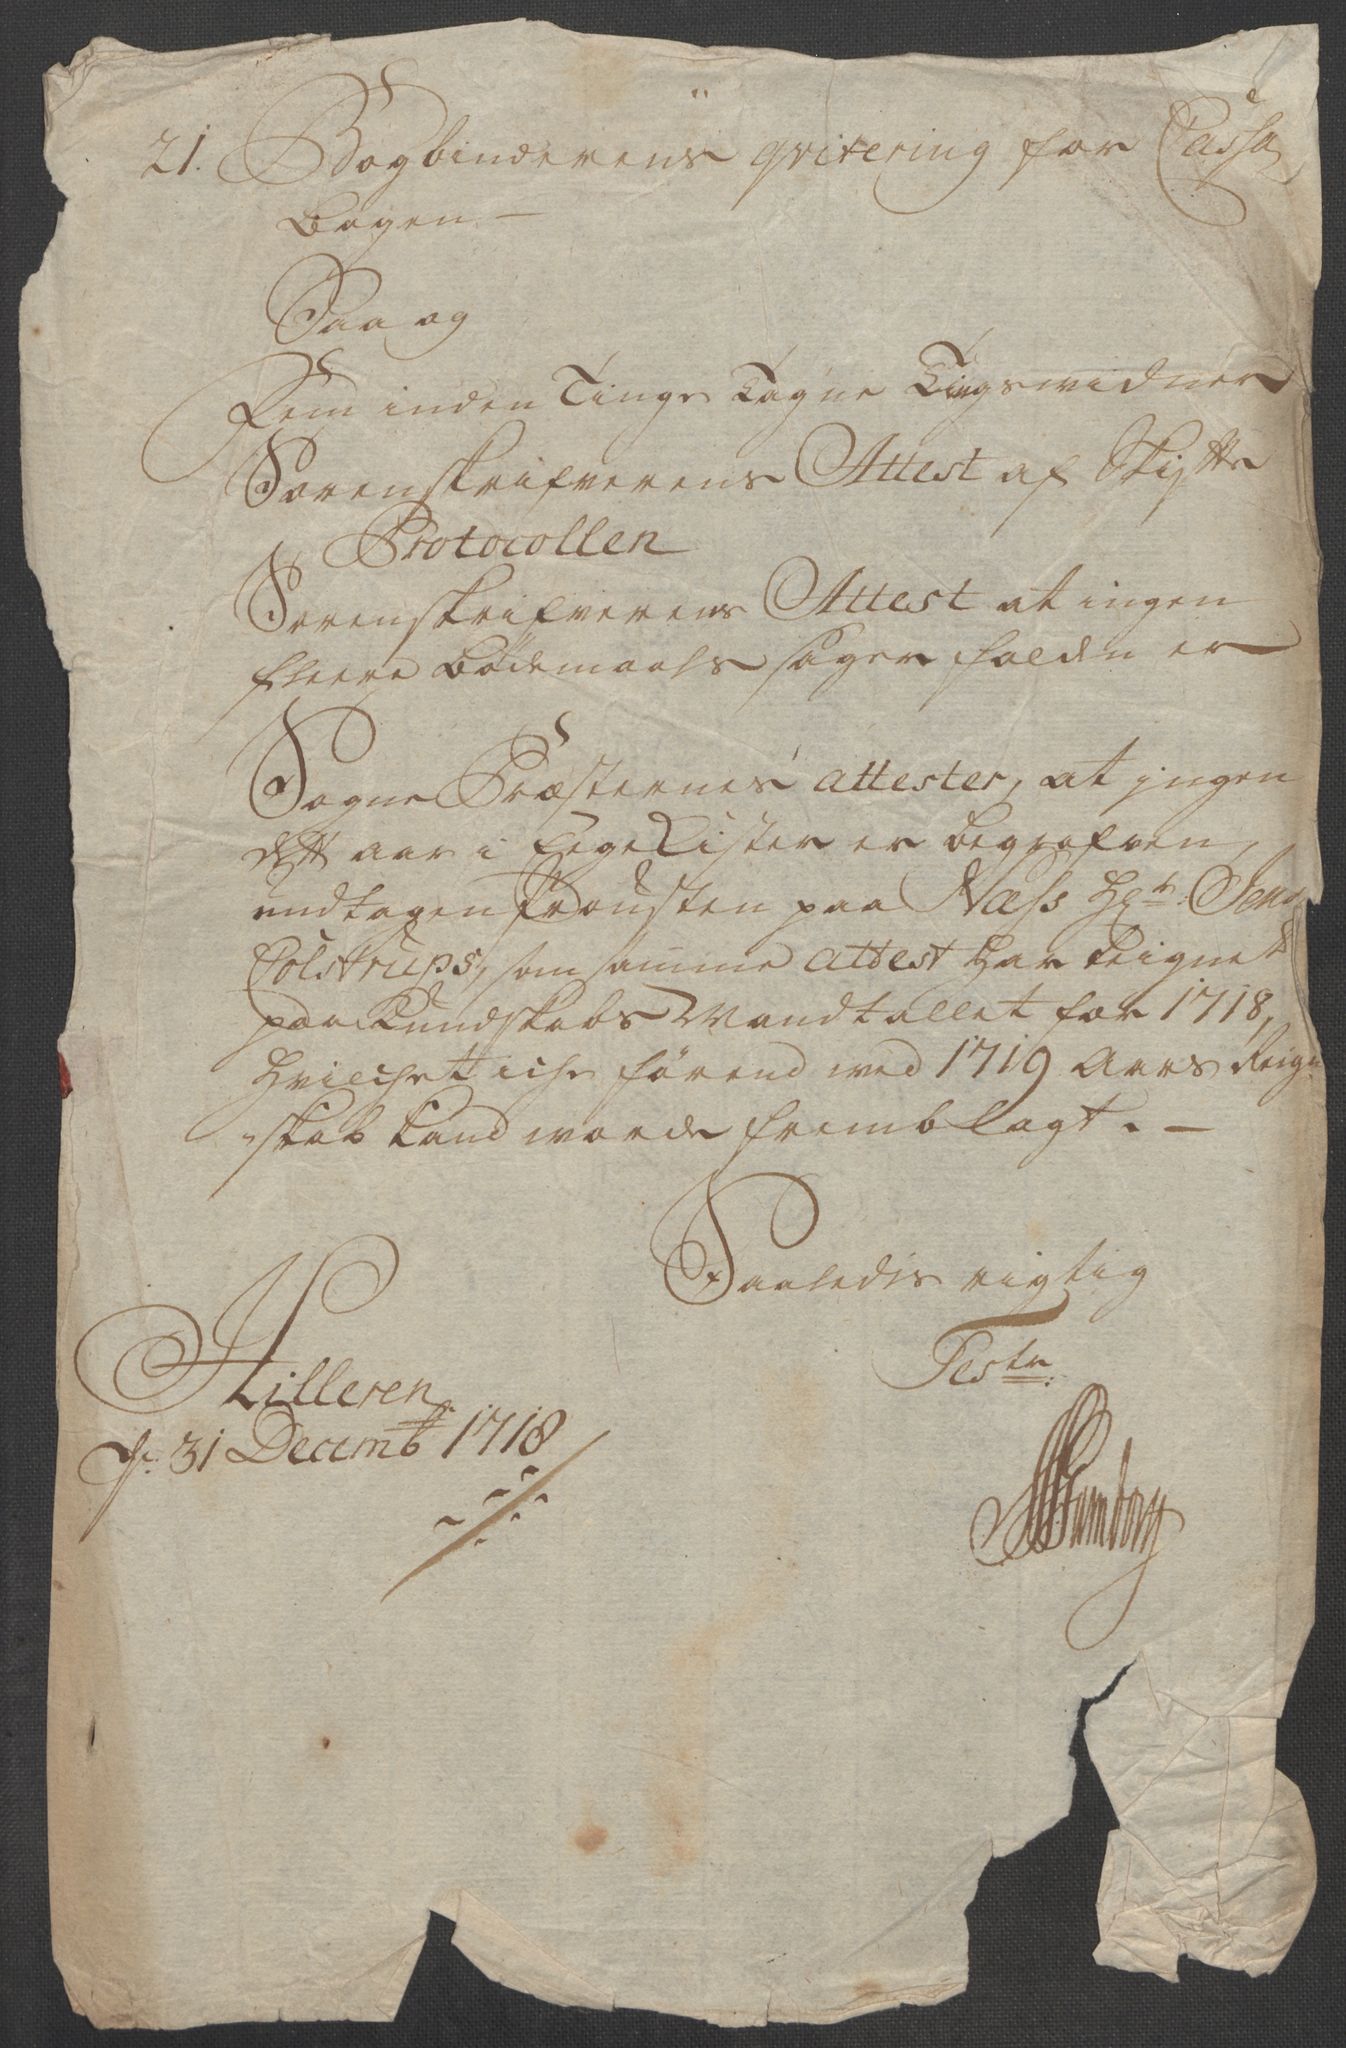 21. Bogbinderens qvitering for Cassa
Bogen. —
Saa og
Fem inden Tinge Tagne Tingsvidner
Sorenskrifverens Attest af Skifte
Protocollen
Sorenskrifverens Attest at ingen
fleere Bødemaals sager falden er
Sogne Præsternes attester, at jngen
dette aar i Eege Kister er begrafven,
undtagen Prousten paa Næss Hr. Jens
Colstrups, som samme attest har teignet
paa Kundskabs Mandtallet for 1718,
Hvilchet iche førend ved 1719 Aars Reign
skab kand worde fremblagt. —
Saaledis rigtig
Test
Hilleren
d. 31 Decemb 1718